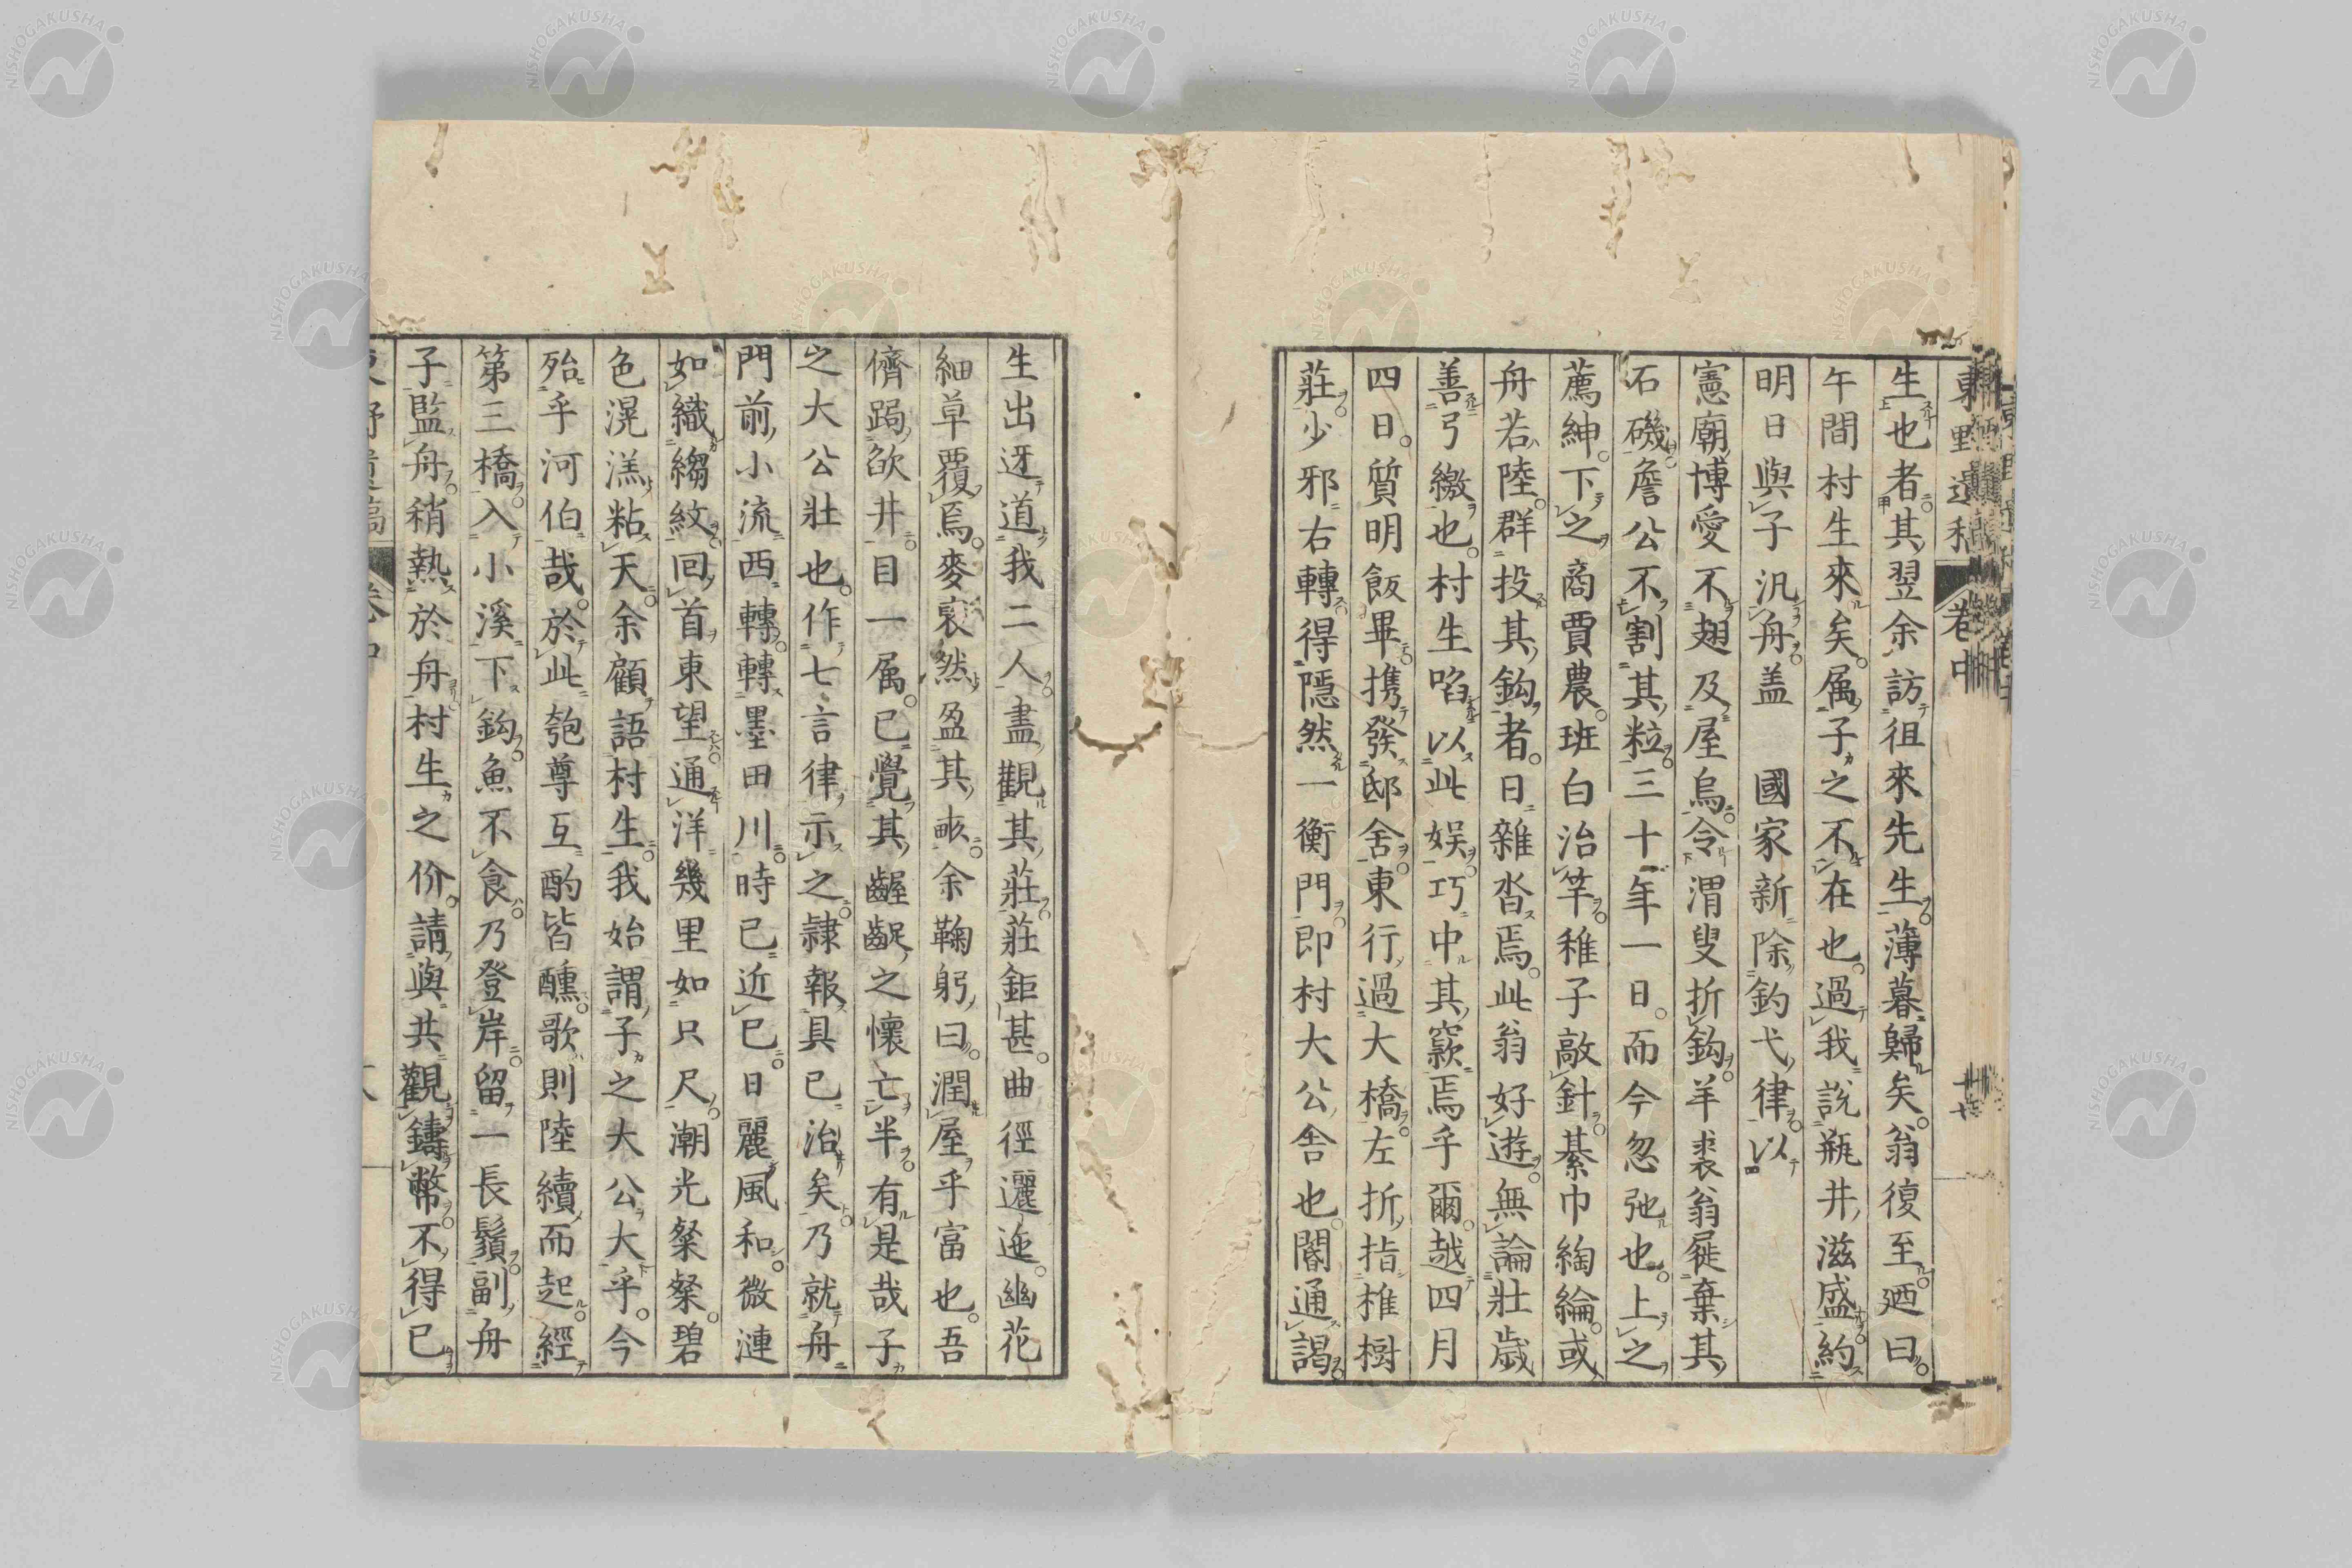 生也者其翌余訪徂來先生薄暮歸矣翁復至廼曰
午間村生來矣属子之不在也過我説瓶井滋盛約
明日與子汎舟盖　國家新除釣弋律以
憲廟博愛不翅及屋烏令渭叟折鈎羊裘翁屣棄其
石磯詹公不割其粒三十年一日而今忽弛也上之
薦紳下之商賈農班白治竿稚子敲針綦巾綯綸或
舟若陸群投其鈎者日雜沓焉此翁好遊無論壯歳
善弓繳也村生啗以此娯巧中其窾焉乎爾越四月
四日質明飯畢携發邸舍東行過大橋左折指椎樹
莊少邪右轉得隠然一衡門即村大公舎也閽通謁
生出迓道我二人盡觀其莊莊鉅甚曲徑邐迤幽花
細草覆焉麥裒然盈其畞余鞠躬曰潤屋乎富也吾
儕跼歛井目一属已覺其齷齪之懷亡半有是哉子
之大公壯也作七言律示之隷報具已治矣乃就舟
門前小流西轉轉墨田川時已近巳日麗風和微漣
如織縐紋回首東望通洋幾里如只尺潮光粲粲碧
色滉漾粘天余顧語村生我始謂子之大公大乎今
殆乎河伯哉於此匏尊互酌皆醺歌則陸續而起經
第三橋入小溪下鈎魚不食乃登岸留一長鬚副舟
子監舟稍熱於舟村生之价請與共觀鑄幣不得已
東野遺稿
卷中